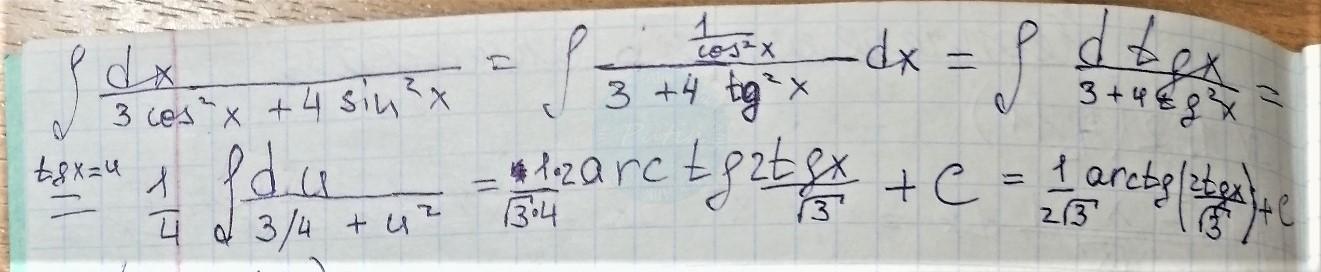 ∫ dx / (3 cos² x + 4 sin² x) = ∫ (1/cos² x) / (3 + 4 tg² x) dx = ∫ d tg x / (3 + 4 tg² x) =
tg x = u = 1/4 ∫ du / (3/4 + u²) = 1·2/(√3·4) arctg 2tg x/√3 + C = 1/(2√3) arctg (2tg x/√3) + C